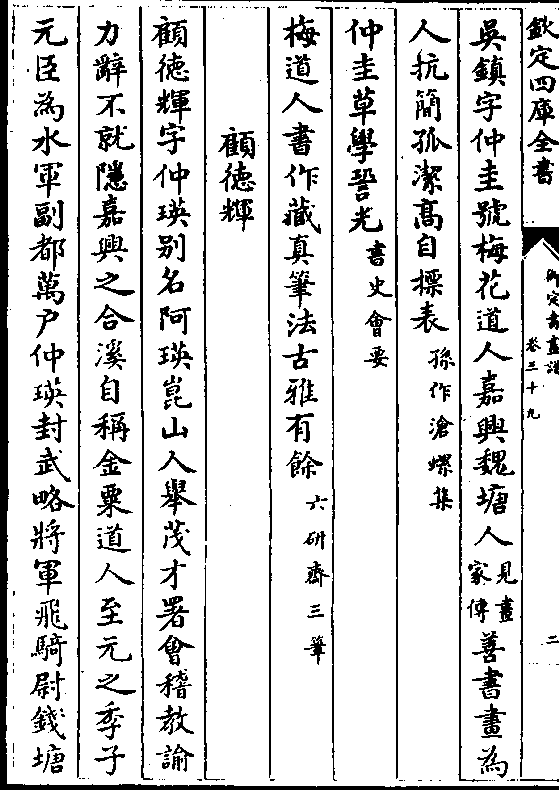 欽定四庫全書
御定書畫譜
卷三十九
二
吳鎮字仲圭號梅花道人嘉興魏塘人見畫家傳善書畫為
人抗簡孤潔高自摽表孫作滄螺集
仲圭草學䛒光書史會要
梅道人書作藏真筆法古雅有餘六研齋三筆
顧徳輝
顧徳輝字仲瑛别名阿瑛崑山人舉茂才署會稽教諭
力辭不就隱嘉興之合溪自稱金粟道人至元之季子
元臣為水軍副都萬户仲瑛封武略將軍飛騎尉錢塘